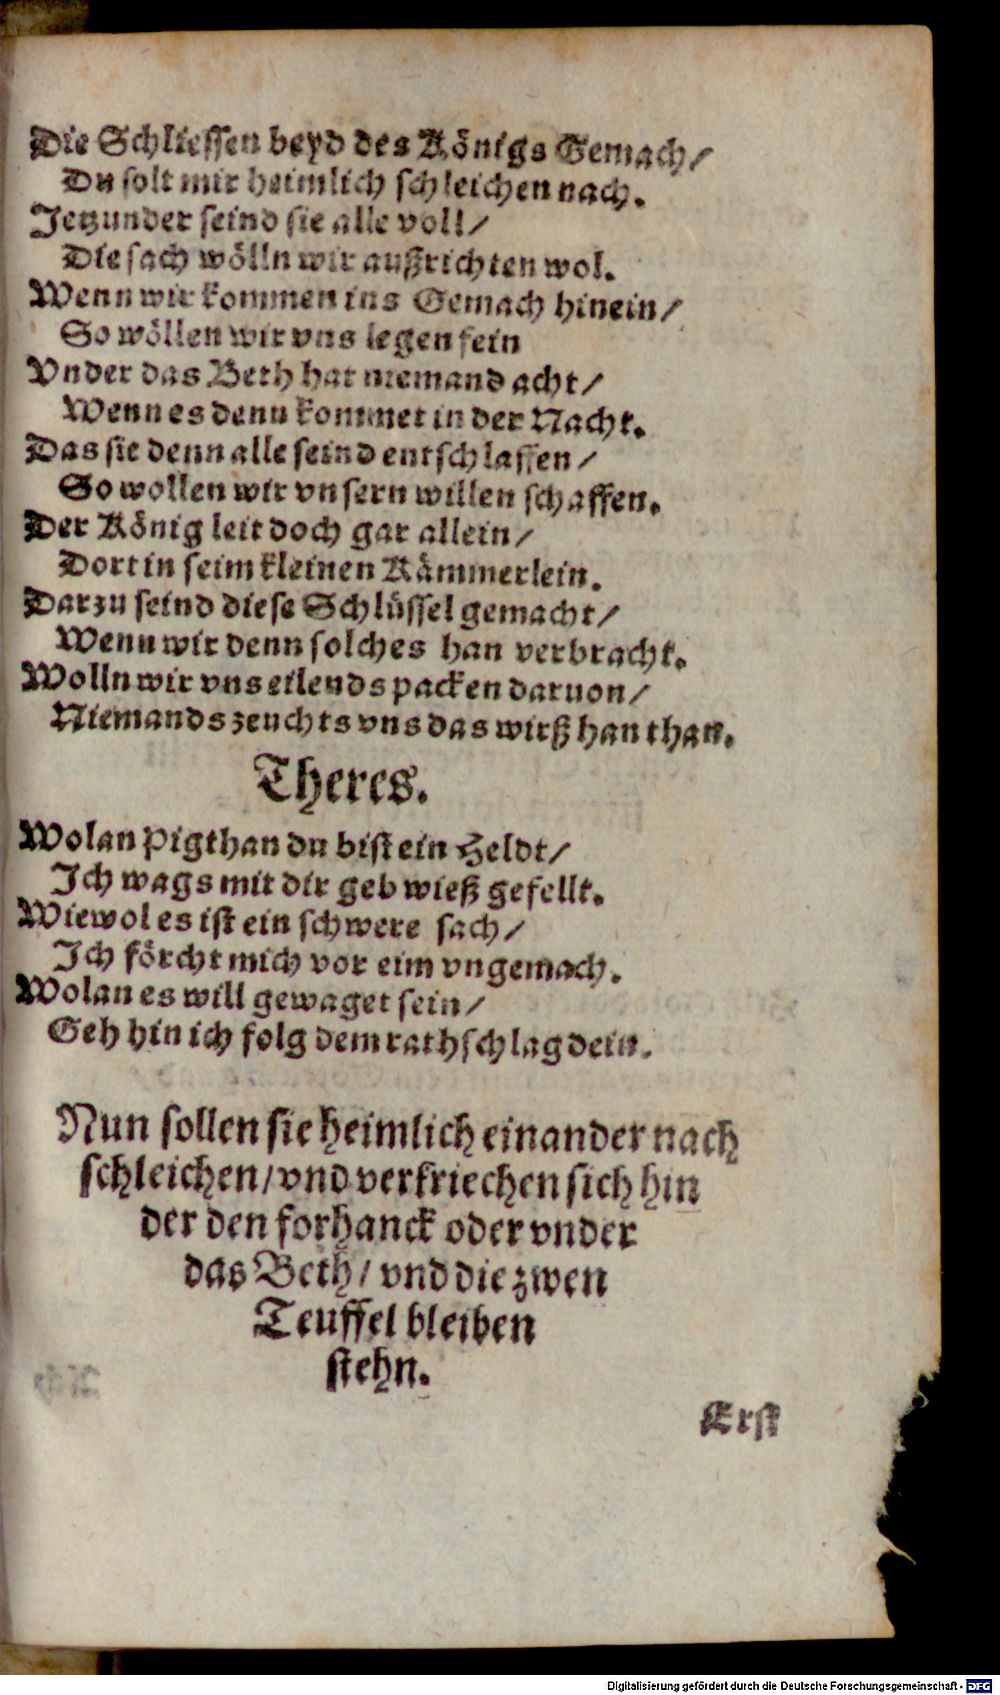 Die Schliessen beyd des Königs Gemach/
Du solt mir heimlich schleichen nach.
Jetzunder seind sie alle voll/
Die sach wölln wir außrichten wol.
Wenn wir kommen ins Gemach hinein/
So wöllen wir vns legen fein
Vnder das Beth hat niemand acht/
Wenn es denn kommet in der Nacht.
Das sie denn alle seind entschlaffen/
So wollen wir vnsern willen schaffen.
Der König leit doch gar allein/
Dort in seim kleinen Kämmerlein.
Darzu seind diese Schlüssel gemacht/
Wenn wir denn solches han verbracht.
Wolln wir vns eilends packen daruon/
Niemands zeuchts vns das wirß han than.
Theres.
Wolan Pigthan du bist ein Heldt/
Ich wags mit dir geb wieß gefellt.
Wiewol es ist ein schwere sach/
Ich förcht mich vor eim vngemach.
Wolan es will gewaget sein/
Geh hin ich folg dem rathschlag dein.
Nun sollen sie heimlich einander nach
schleichen/ vnd verkriechen sich hin
der den forhanck oder vnder
das Beth/ vnd die zwen
Teuffel bleiben
stehn.
Erst
Digitalisierung gefördert durch die Deutsche Forschungsgemeinschaft - DFG